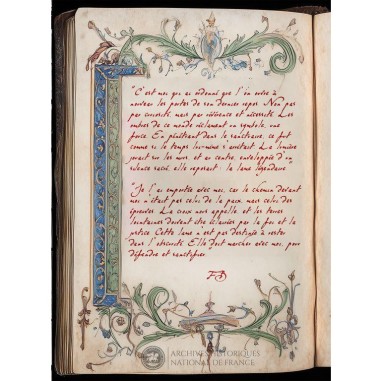 "C'est moi qui ai ordonné que l'on ouvre à
nouveau les portes de son dernier repos. Non pas
par curiosité, mais par référence et nécessité. Les
ombres de ce monde réclament un symbole, une
force. En pénétrant dans le sanctuaire, ce fut
comme si le temps lui-même s'arrêtait. La lumière
jouait sur les murs, et au centre, enveloppée d'un
silence sacré, elle reposait : la lame légendaire.
"Je l'ai emportée avec moi, car le chemin devant
moi n'était pas celui de la paix, mais celui des
épreuves. La croix nous appelle, et les terres
lointaines doivent être éclairées par la foi et la
justice. Cette lame n'est pas destinée à rester
dans l'obscurité. Elle doit marcher avec moi, pour
défendre et sanctifier.
ARCHIVES HISTORIQUES
NATIONAL DE FRANCE